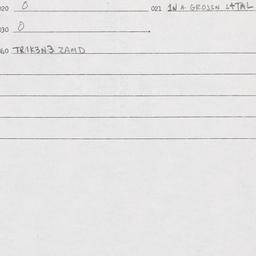 020 0 021 IN A GROSSEN STAL
030 0
060 TRIK3N3 ZAMD